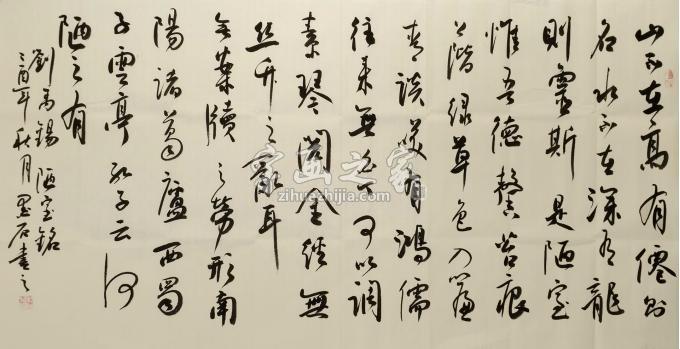 山不在高有僊則
名水不在深有龍
則靈斯是陋室
惟吾德馨苔痕
上階綠草色入簾
青談笑有鴻儒
往來無白丁可以調
素琴閱金經無
丝竹之亂耳
無案牘之勞形南
陽諸葛廬西蜀
子雲亭孔子云何
陋之有
劉禹錫 陋室銘
酉年秋月墨石書之
字画之家
zihuazhijia.com